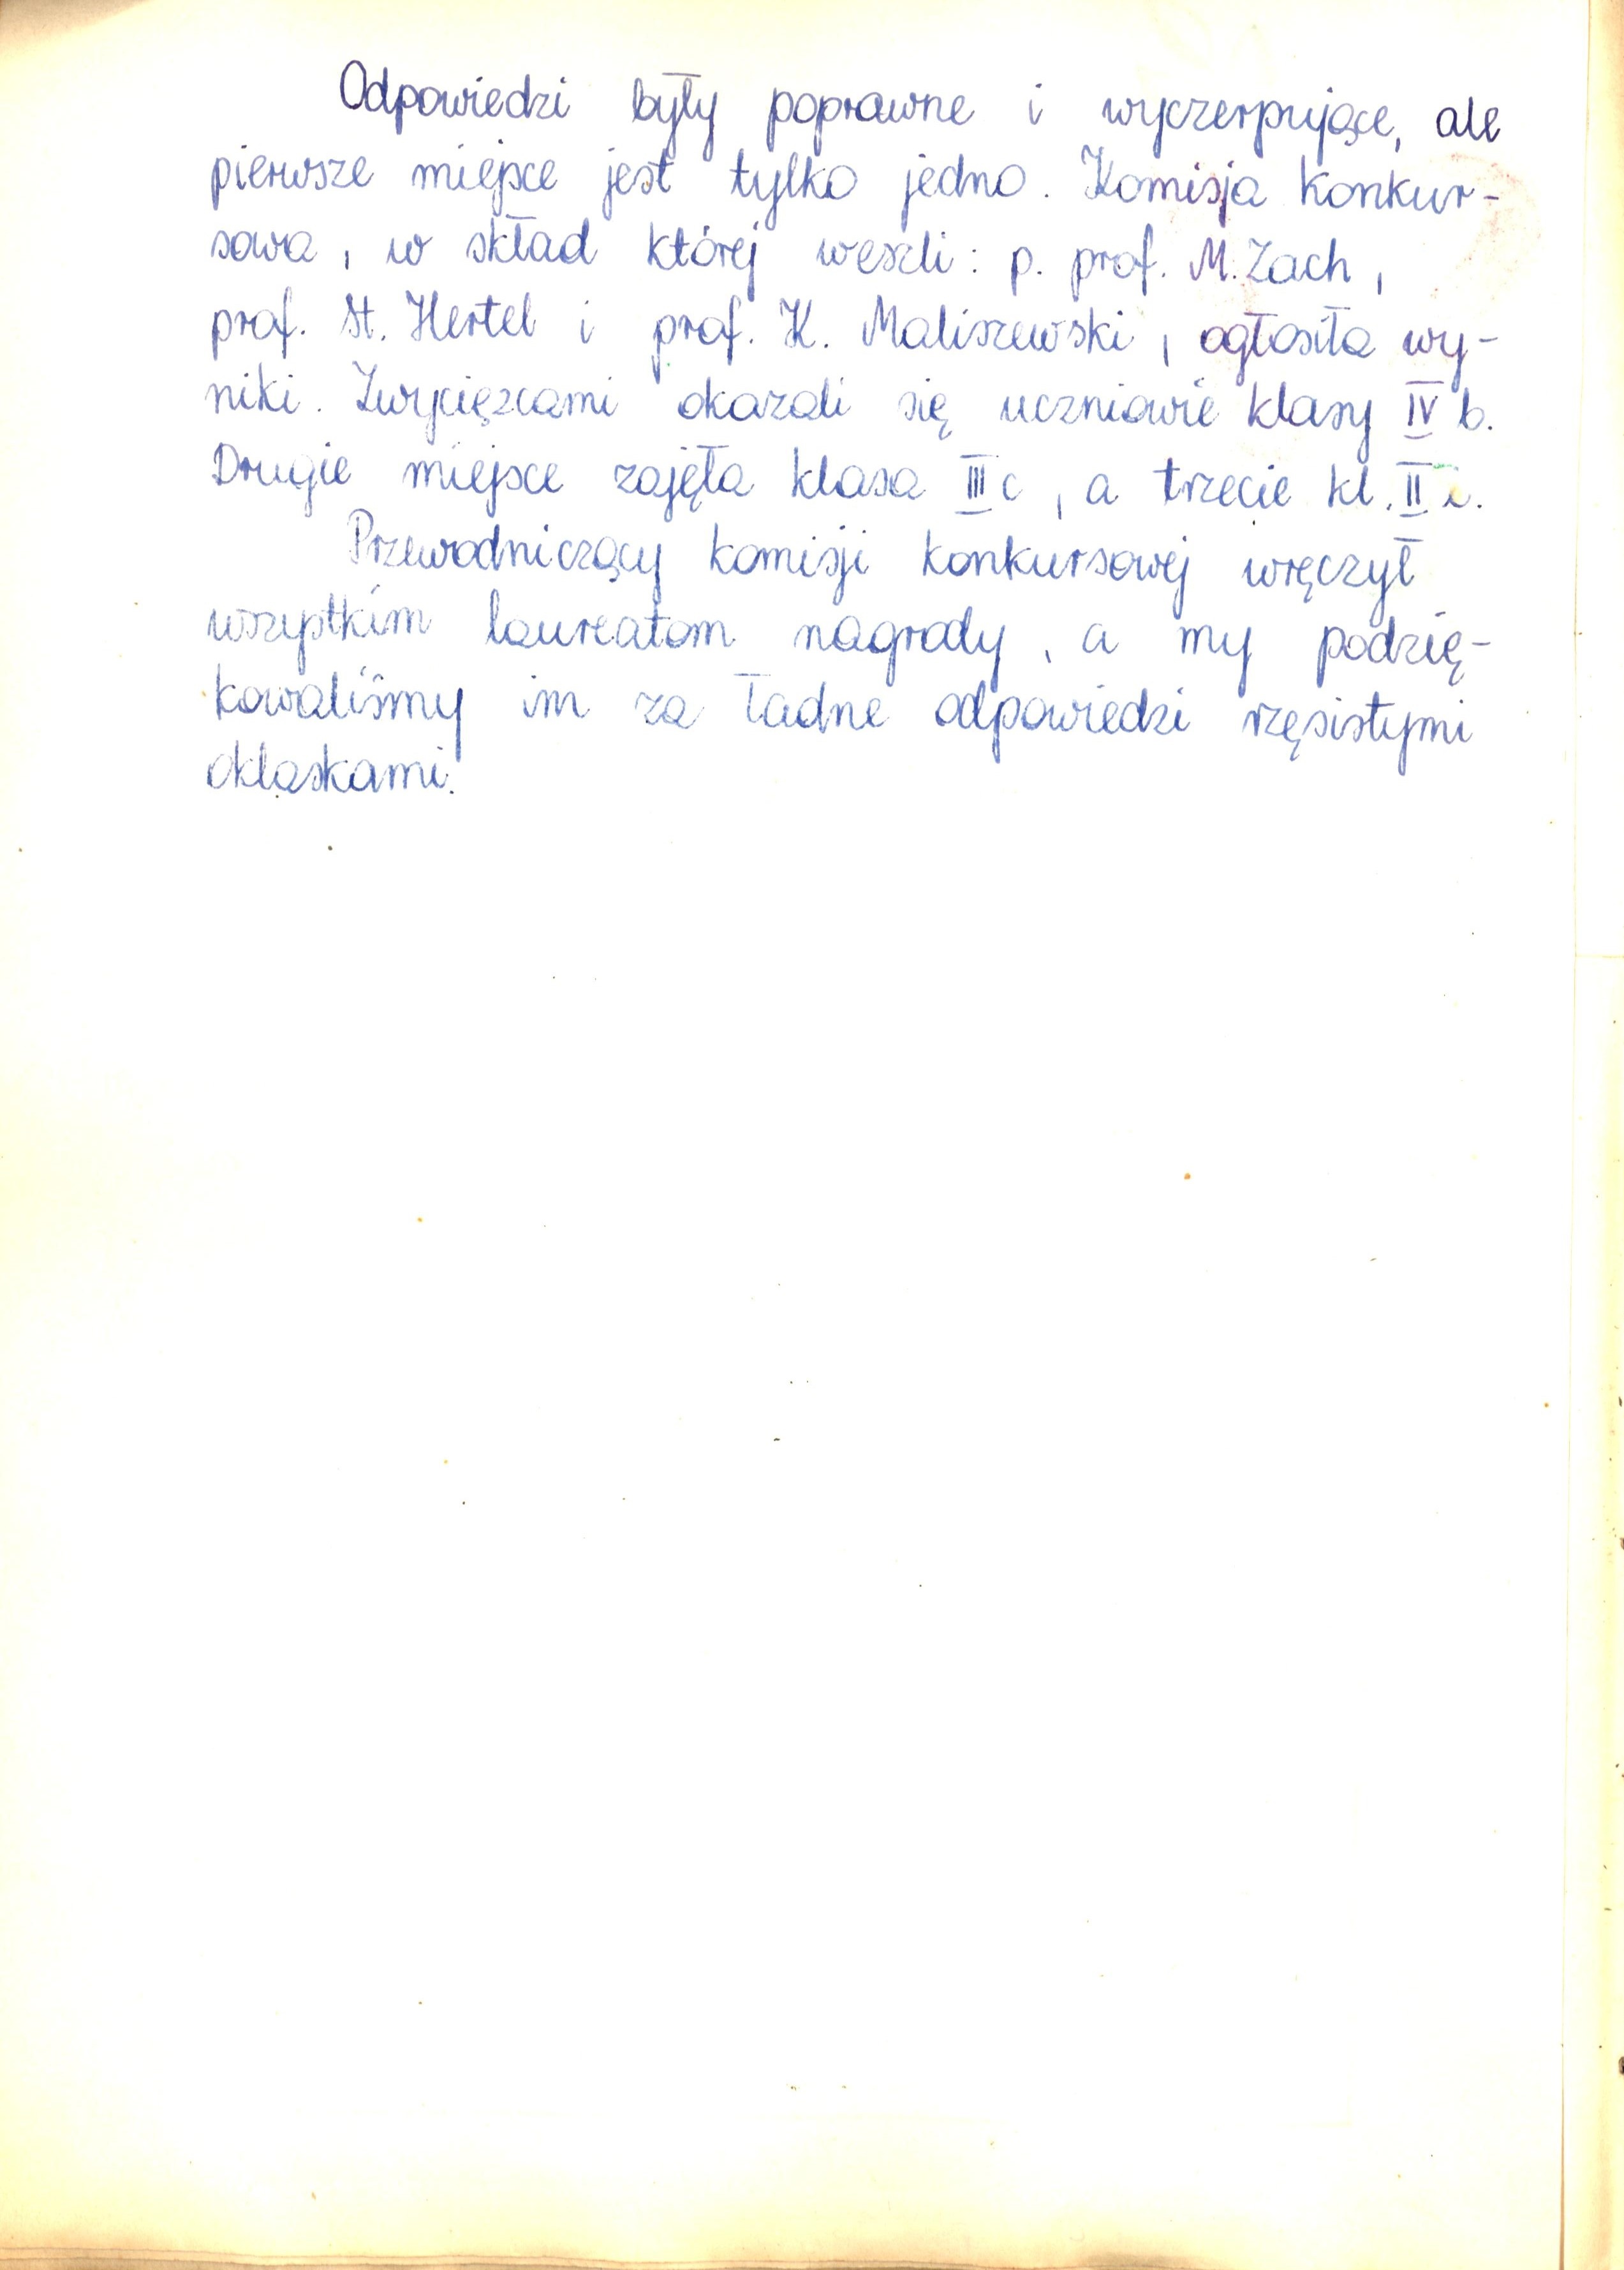 Odpowiedzi były poprawne i wyczerpujące, ale
pierwsze miejsce jest tylko jedno. Komisja konkur-
sowa, w skład której weszli: p. prof. M. Zach,
prof. St. Hertel i prof. K. Maliszewski, ogłosiła wy-
niki. Zwycięzcami okazali się uczniowie klasy IV b.
Drugie miejsce zajęła klasa III c, a trzecie kl. II
Przewodniczący komisji konkursowej wręczył
wszystkim laureatom nagrody, a my podzię-
kowaliśmy im za ładne odpowiedzi rzęsistymi
oklaskami.